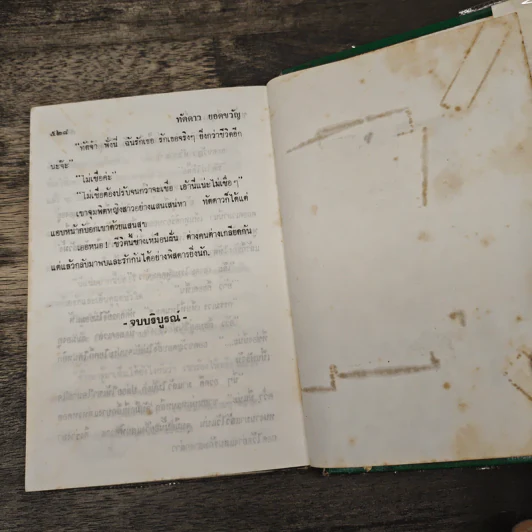 ทัดดาว ยอดขวัญ
๕๒๘
"ทัดจ๋า พี่งนี้ ฉันรักเธอ รักเธอจริงๆ ยิ่งกว่าชีวิตอีก
นะจ๊ะ"
"ไม่เชื่อค่ะ"
"ไม่เชื่อต้องปรับจนกว่าจะเชื่อ เอ้านี่แน่ะไม่เชื่อๆ"
เขาจุมพิตหญิงสาวอย่างแสนเสน่หา ทัดดาวก็ได้แต่
แอบหน้ากับอกเขาด้วยแสนสุข
เออหนอ! ชีวิตนี้ช่างเหมือนฝัน ต่างคนต่างเกลียดกัน
แต่แล้วกลับมาพบและรักกันได้อย่างพิสดารยิ่งนัก.
- จบบริบูรณ์ -